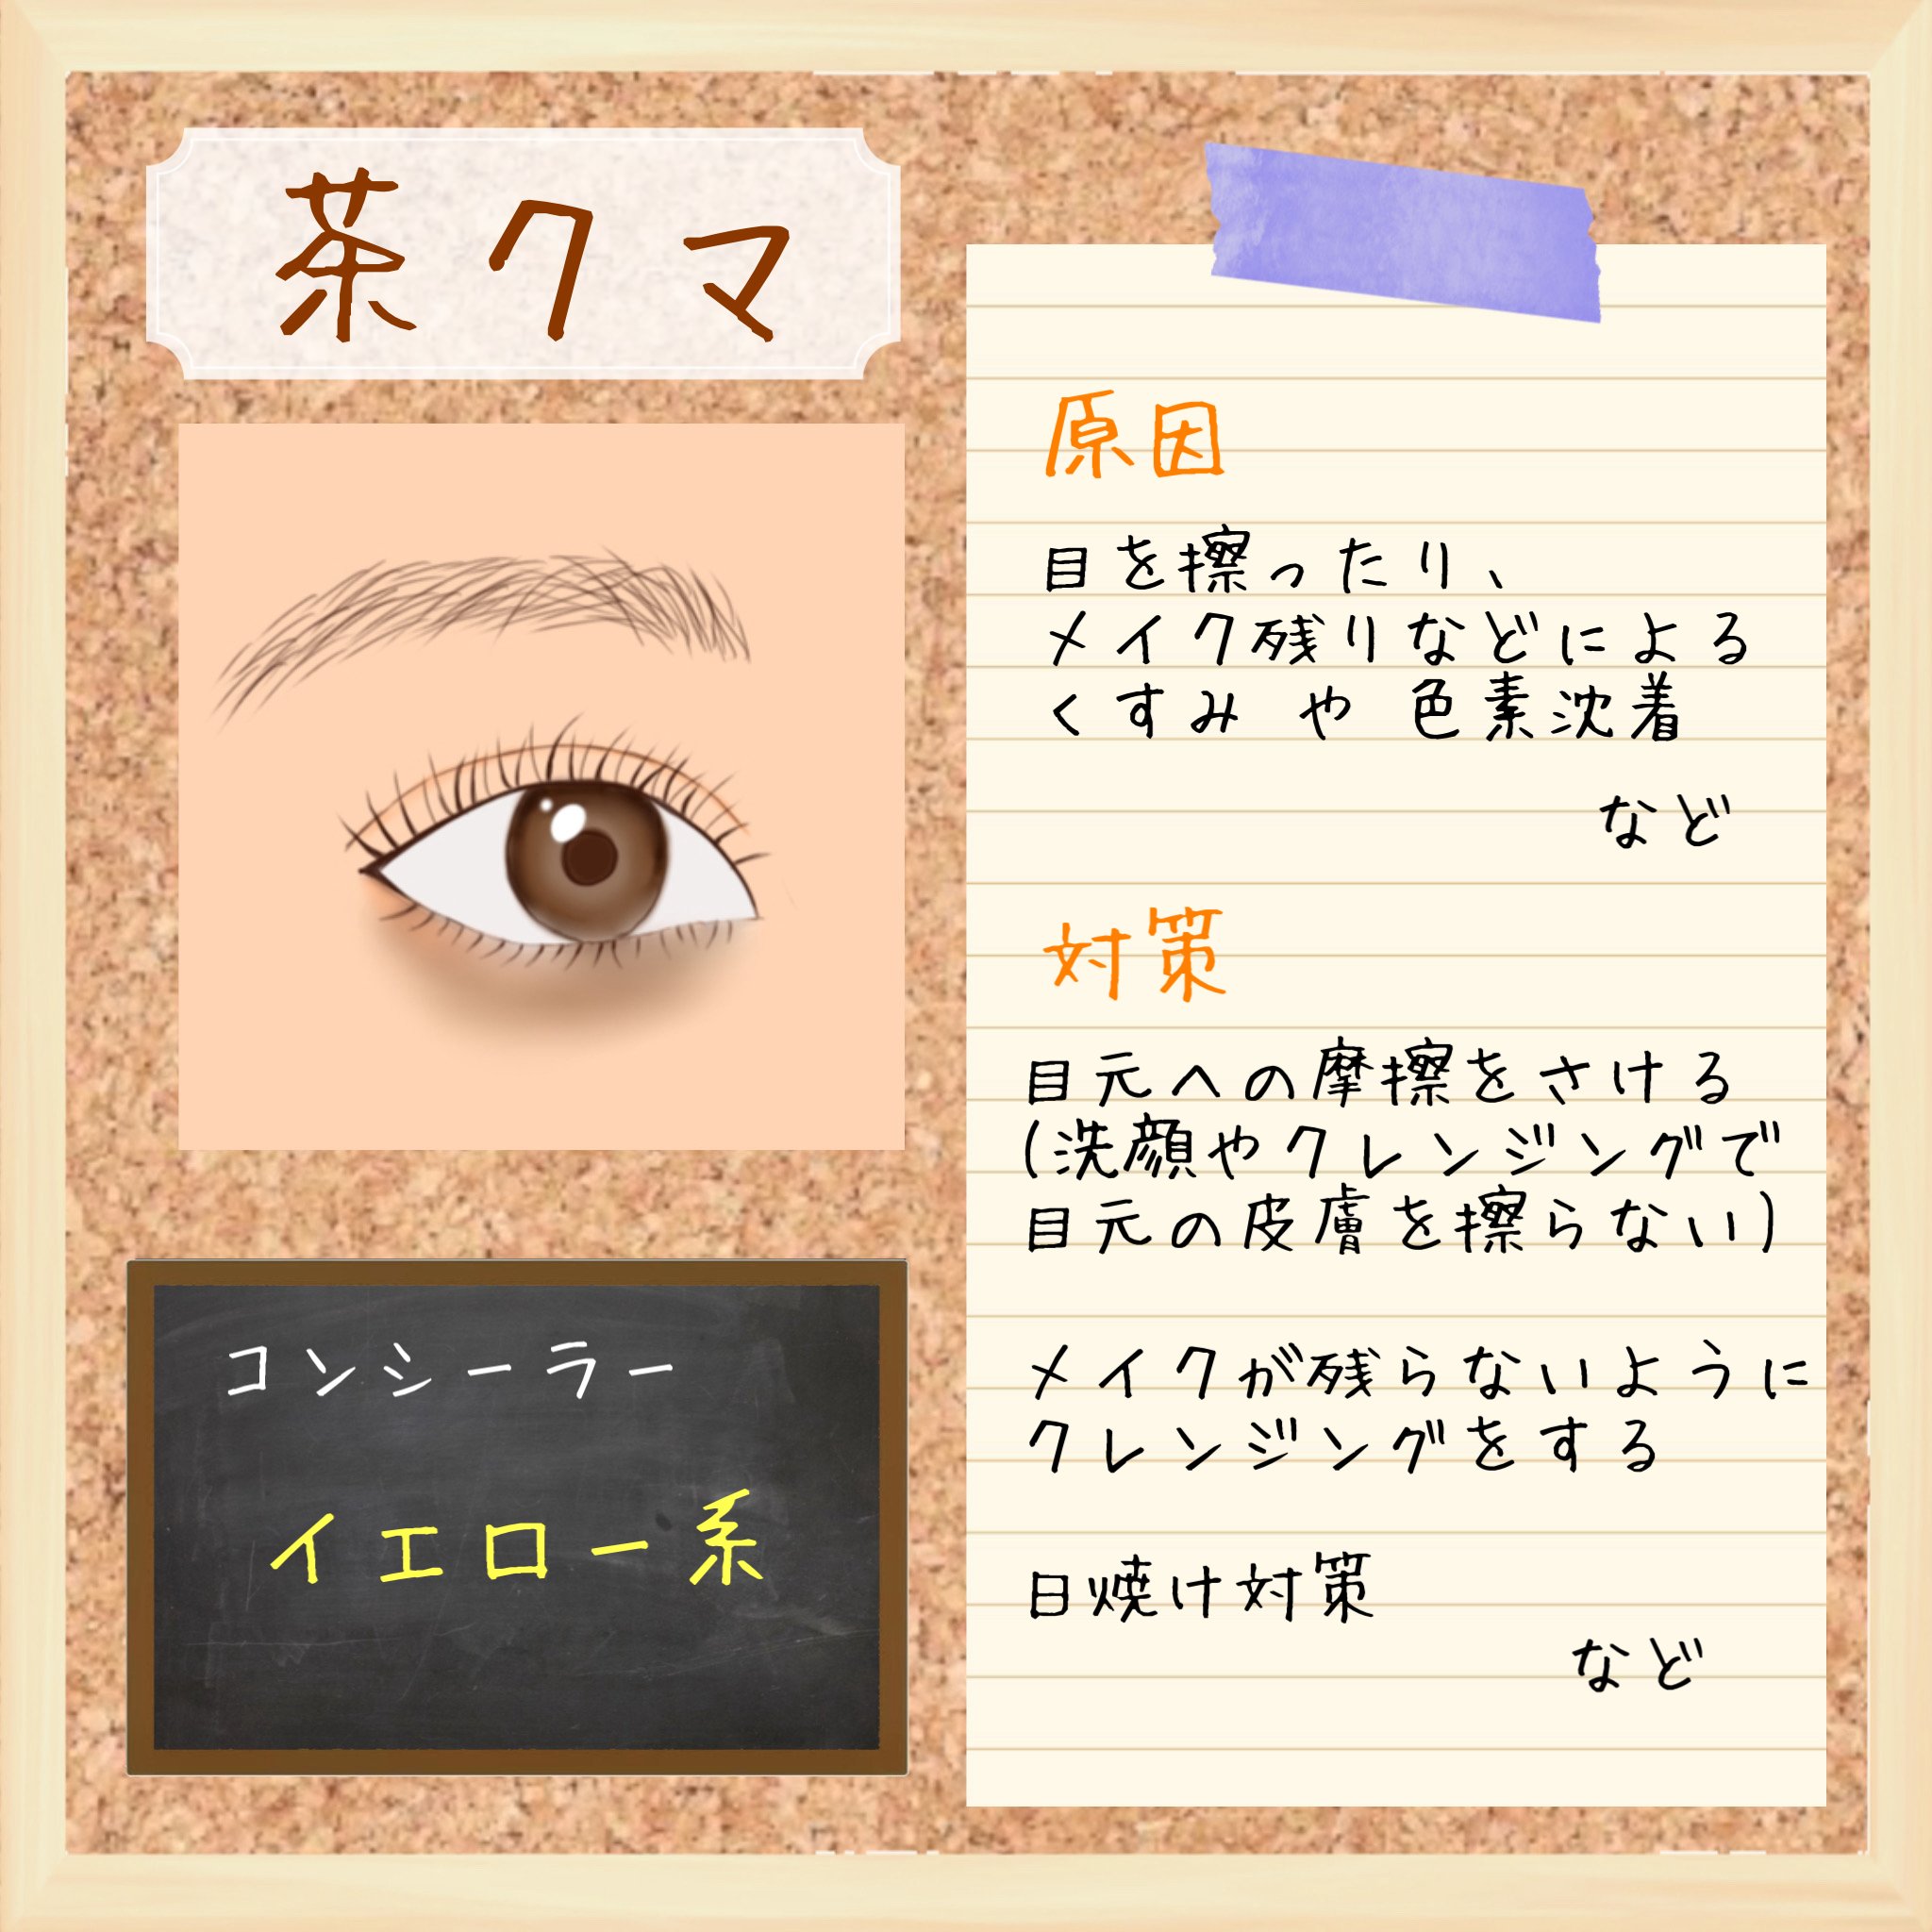 茶クマ
原因
目を擦ったり、
メイク残りなどによる
くすみ や 色素沈着
など
対策
目元への摩擦をさける
(洗顔やクレンジングで
目元の皮膚を擦らない)
メイクが残らないように
クレンジングをする
日焼け対策
など
コンシーラー
イエロー系